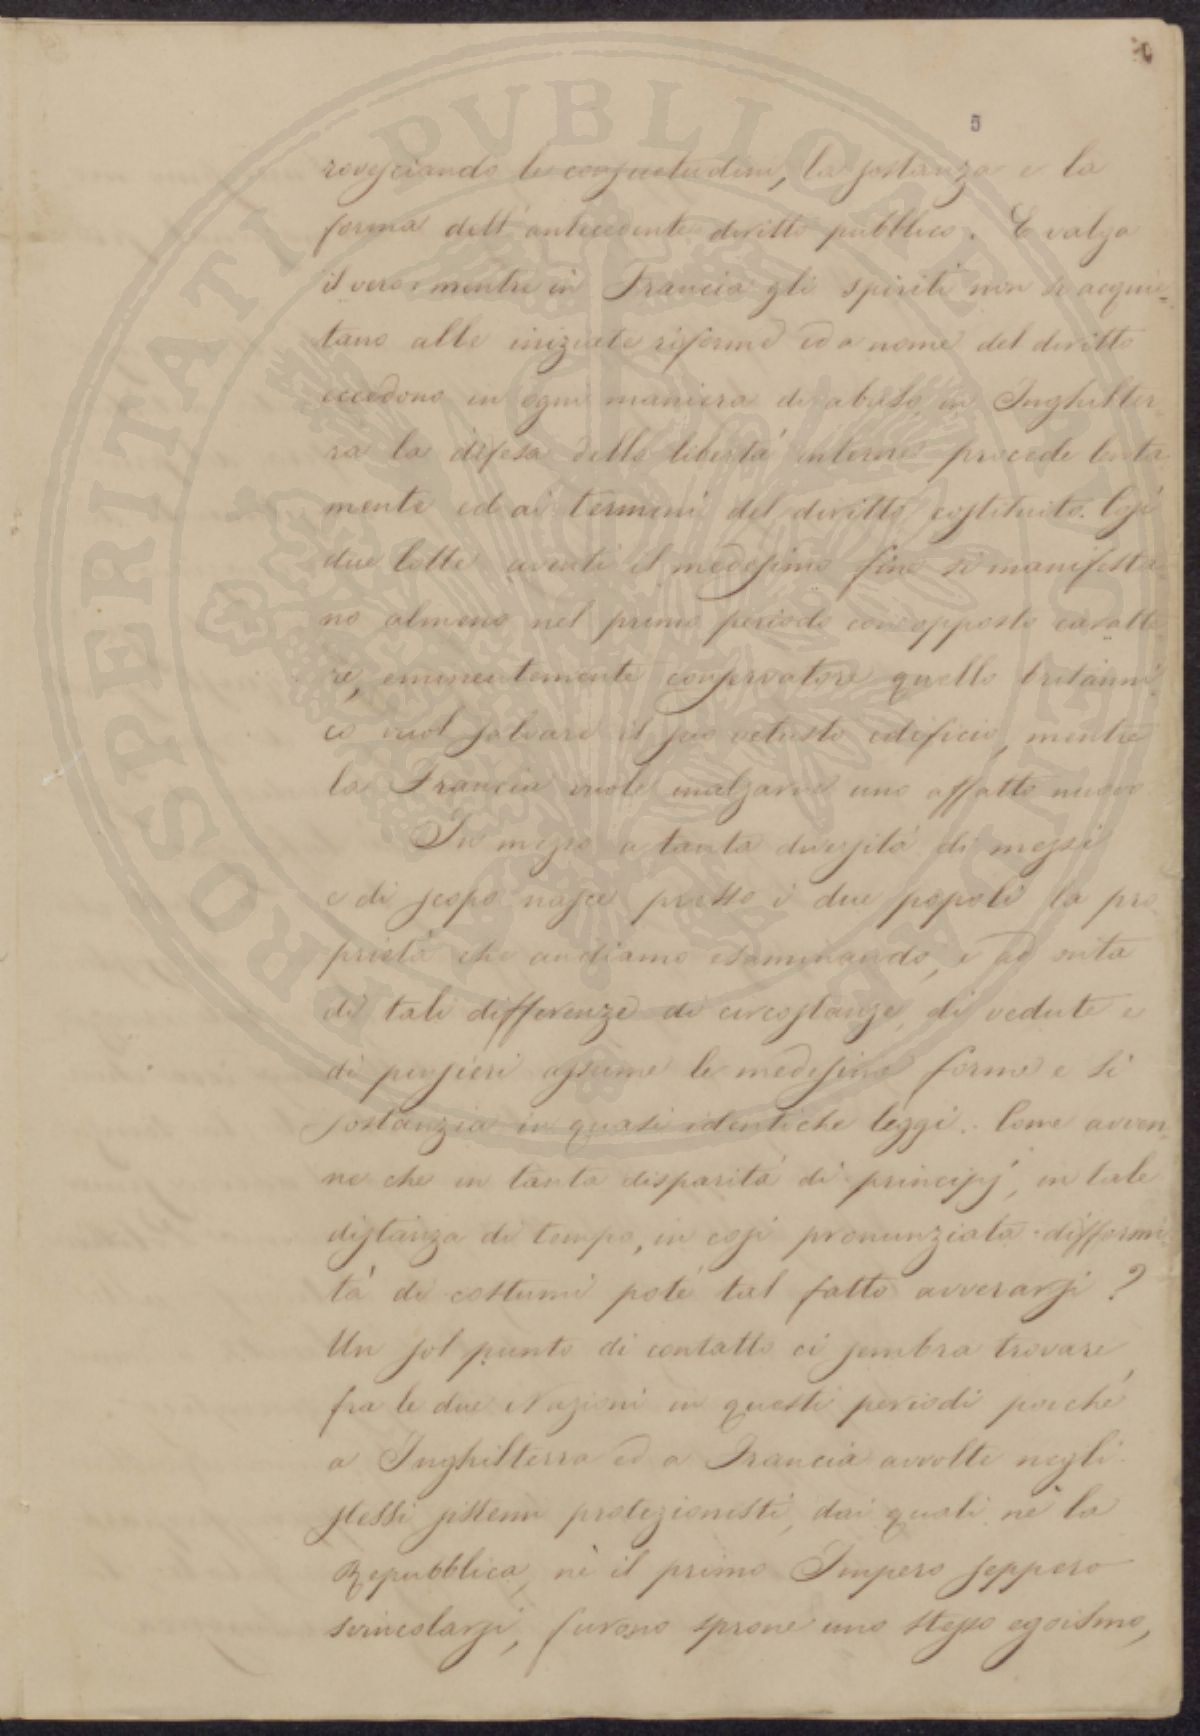 5
rovesciando le consuetudini, la sostanza e la
forma dell'antecedente diritto pubblico. E valga
il vero: mentre in Francia gli spiriti non si acquie-
tano alle iniziate riforme ed a nome del diritto
eccedono in ogni maniera di abuso, in Inghilter-
ra la difesa della libertà interna procede lenta
mente ed ai termini del diritto costituito. Così
due lotte aventi il medesimo fine si manifesta-
no almeno nel primo periodo con opposto caratte-
re, eminentemente conservatore quello britanni-
co vuol salvare il suo vetusto edificio, mentre
la Francia vuole inalzarne uno affatto nuovo
In mezzo a tanta diversità di mezzi
e di scopo nasce presso i due popoli la pro
prietà che andiamo esaminando, e ad onta
di tali differenze di circostanze, di vedute e
di pensieri assume le medesime forme e si
sostanzia in quasi identiche leggi. Come avven-
ne che in tanta disparità di principj, in tale
distanza di tempo, in così pronunziata difformi-
tà di costumi potè tal fatto avverarsi?
Un sol punto di contatto ci sembra trovare
fra le due Nazioni in questi periodi poichè
a Inghilterra ed a Francia avvolte negli
stessi sistemi protezionisti, dai quali nè la
Repubblica, nè il primo Impero seppero
svincolarsi, furono sprone uno stesso egoismo,
PROSPERITATI PVBLICAE